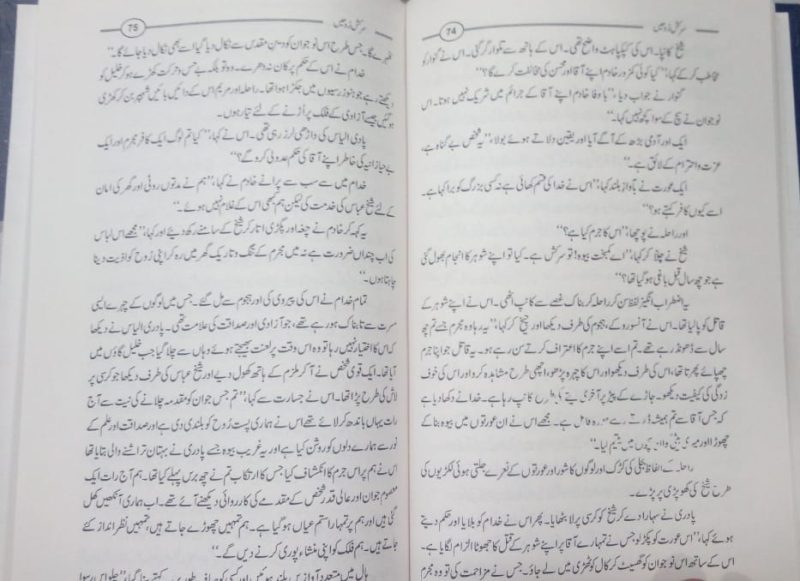 سرکش روحیں
74
شیخ کانپا۔ اس کی کپکپاہٹ واضح تھی۔ اس کے ہاتھ سے تلوار گر گئی۔ اس نے گنوار کو
مخاطب کر کے کہا، ”کیا کوئی کمزور خادم اپنے آقا اور محسن کی مخالفت کرے گا؟“
گنوار نے جواب دیا، ”باوفا خادم اپنے آقا کے جرائم میں شریک نہیں ہوتا۔ اس
نوجوان نے سچ کے سوا کچھ نہیں کہا۔“
ایک اور آدمی بڑھ کے آگے آیا اور یقین دلاتے ہوئے بولا، ”یہ شخص بے گناہ ہے،
عزت و احترام کے لائق ہے۔“
ایک عورت نے بآواز بلند کہا، ”اس نے خدا کی قسم کھائی ہے نہ کسی بزرگ کو برا کہا ہے۔
اسے کیوں کافر کہتے ہو؟“
اور راحلہ نے پوچھا، ”اس کا جرم کیا ہے؟“
شیخ نے چلا کر کہا، ”اے کمبخت بیوہ! تو سرکش ہے۔ کیا تو اپنے شوہر کا انجام بھول گئی
ہے جو چھ سال قبل باغی ہو گیا تھا؟“
یہ اضطراب انگیز لفظ سن کر راحلہ کربناک غصے سے کانپ اٹھی۔ اس نے اپنے شوہر کے
قاتل کو پا لیا تھا۔ اس نے آنسو روکے، ہجوم کی طرف دیکھا اور چیخ کر کہا، ”یہ رہا وہ مجرم جسے تم چھ
سال سے ڈھونڈ رہے تھے۔ تم اسے اپنے جرم کا اعتراف کرتے سن رہے ہو۔ یہ قاتل جو اپنا جرم
چھپائے پھرتا تھا، اس کی طرف دیکھو اور اس کا چہرہ پڑھو، اچھی طرح مشاہدہ کرو اور اس کی خوف
زدگی کی کیفیت دیکھو۔ جاڑے کے پیڑ پر آخری پتے کی طرح کانپ رہا ہے۔ خدا نے دکھا دیا ہے
کہ جس آقا سے تم ہمیشہ ڈرتے رہے، وہ قاتل ہے۔ مجھے اس نے ان عورتوں میں بیوہ بنا کے
چھوڑا اور میری بیٹی بچوں میں یتیم کیا۔“
راحلہ کے الفاظ بجلی کی کڑک اور لوگوں کا شور اور عورتوں کے نعرے جلتی ہوئی لکڑیوں کی
طرح شیخ کی کھوپڑی پر پڑے۔
پادری نے سہارا دے کر شیخ کو کرسی پر لا بٹھایا۔ پھر اس نے خدام کو بلایا اور حکم دیتے
ہوئے کہا، ”اس عورت کو پکڑ لو جس نے تمہارے آقا پر اپنے شوہر کے قتل کا جھوٹا الزام لگایا ہے۔
اس کے ساتھ اس نوجوان کو گھسیٹ کر کال کوٹھڑی میں لے جاؤ۔ جس نے مزاحمت کی تو وہ مجرم
سرکش روحیں
75
ٹھہرے گا۔ جس طرح اس نوجوان کو دین مقدس سے نکال دیا گیا اسے بھی نکال دیا جائے گا۔“
خدام نے اس کے حکم پر کان نہ دھرے۔ وہ تو بلکہ بے حس و حرکت کھڑے ہو کر خلیل کو
دیکھتے رہے جو ہنوز رسیوں میں جکڑا ہوا تھا۔ راحلہ اور مریم اس کے دائیں بائیں شہپر بن کر کھڑی
ہو گئیں جیسے آزادی کے فلک پر اڑنے کے لئے تیار ہوں۔
پادری الیاس کی داڑھی لرز رہی تھی۔ اس نے کہا، ”کیا تم لوگ ایک کافر مجرم اور ایک
بے حیا زانیہ کی خاطر اپنے آقا کی حکم عدولی کرو گے؟“
خدام میں سے سب سے پرانے خادم نے کہا، ”ہم نے مدتوں روٹی اور گھر کی امان
کے لئے شیخ عباس کی خدمت کی لیکن ہم بھی اس کے غلام نہیں ہوئے۔“
یہ کہہ کر خادم نے چغہ اور پگڑی اتار کر شیخ کے سامنے رکھ دیے اور کہا، ”مجھے اس لباس
کی اب چنداں ضرورت ہے نہ میں مجرم کے تنگ و تاریک گھر میں رہ کر اپنی زوح کو اذیت دینا
چاہتا ہوں۔“
تمام خدام نے اس کی پیروی کی اور ہجوم سے مل گئے۔ جس میں لوگوں کے چہرے ایسی
مسرت سے تابناک ہو رہے تھے، جو آزادی اور صداقت کی علامت تھی۔ پادری الیاس نے دیکھا
کہ اس کا اختیار نہیں رہا تو وہ اس وقت پر لعنت بھیجتے ہوئے وہاں سے چلا گیا جب خلیل گاؤں میں
آیا تھا۔ ایک قوی شخص نے آ کر ملزم کے ہاتھ کھول دیے اور شیخ عباس کی طرف دیکھا جو کرسی پر
لاش کی طرح پڑا تھا۔ اس نے جسارت سے کہا، ”تم جس جوان کو مقدمہ چلانے کی نیت سے آج
رات یہاں باندھ کر لائے تھے اس نے ہماری پست زوح کو بلندی دی ہے اور صداقت اور علم کے
نور سے ہمارے دلوں کو روشن کیا ہے اور یہ غریب بیوہ جسے پادری نے بہتان تراشنے والی بتایا تھا
اس نے ہم پر اس جرم کا انکشاف کیا جس کا ارتکاب تم نے چھ برس پہلے کیا تھا۔ ہم آج رات ایک
معصوم جوان اور عالی قدر شخص کے مقدمے کی کارروائی دیکھنے آئے تھے۔ اب ہماری آنکھیں کھل
گئی ہیں اور ہم پر تمہارا ستم عیاں ہو گیا ہے۔ ہم تمہیں چھوڑے جاتے ہیں، تمہیں نظر انداز کئے
جاتے ہیں۔ ہم فلک کو اپنی منشاء پوری کرنے دیں گے۔“
ہال میں متعدد آوازیں بلند ہوئیں اور کسی کو